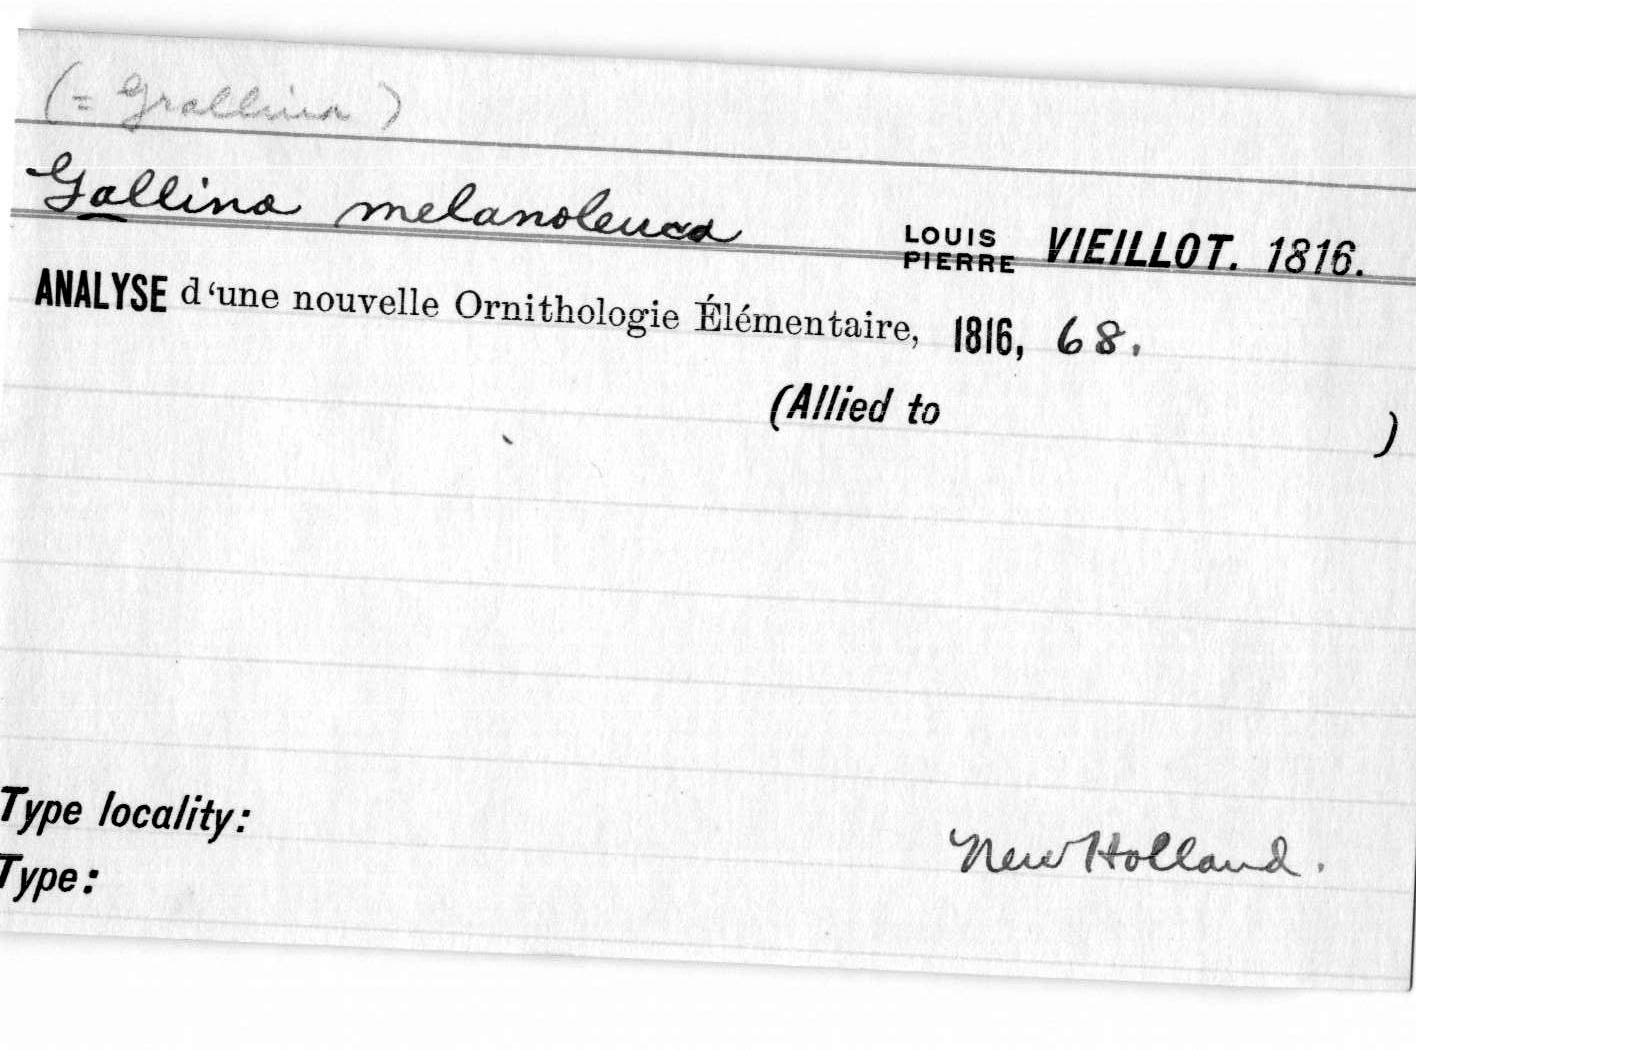 (= Grallina)
Gallina melanoleuca LOUIS PIERRE VIEILLOT. 1816.
ANALYSE d'une nouvelle Ornithologie Élémentaire, 1816, 68.
(Allied to )
Type locality:
New Holland.
Type: